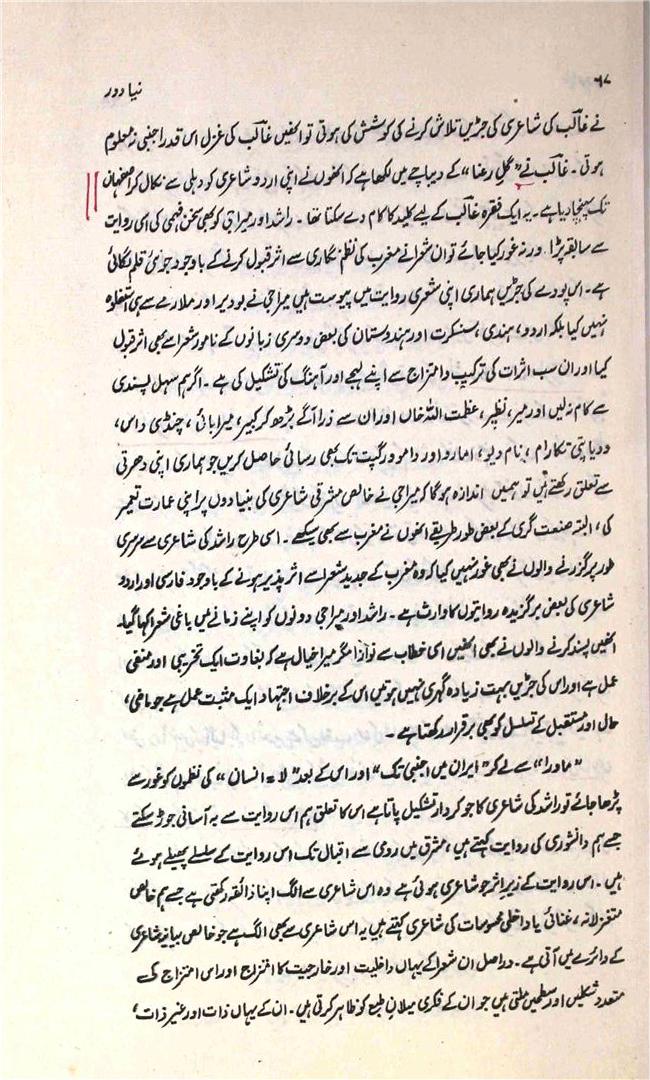 ۶۷
نیا دور
نے غالب کی شاعری کی جڑیں تلاش کرنے کی کوشش کی ہوتی تو انھیں غالب کی غزل اس قدر اجنبی نہ معلوم
ہوتی۔ غالب نے "گلِ رعنا" کے دیباچے میں لکھا ہے کہ انھوں نے اپنی اردو شاعری کو دہلی سے نکال کر اصفہان
تک پہنچا دیا ہے۔ یہ ایک فقرہ غالب کے لیے کلید کا کام دے سکتا تھا۔ راشد اور میراجی کو بھی سخن فہمی کی اسی روایت
سے سابقہ پڑا ورنہ غور کیا جائے تو ان شعرا نے مغرب کی نظم نگاری سے اثر قبول کرنے کے باوجود جو نئی قلم لگائی
ہے۔ اس پودے کی جڑیں ہماری اپنی شعری روایت میں پیوست ہیں میراجی نے بودیر اور ملارمے سے ہی استفادہ
نہیں کیا بلکہ اردو، ہندی، سنسکرت اور ہندوستان کی بعض دوسری زبانوں کے نامور شعرا سے بھی اثر قبول
کیا اور ان سب اثرات کی ترکیب و امتزاج سے اپنے لہجے اور آہنگ کی تشکیل کی ہے۔ اگر ہم سہل پسندی
سے کام نہ لیں اور میر، نظیر، عظمت اللہ خاں اور ان سے ذرا آگے بڑھ کر کبیر، میرابائی، چنڈی داس،
ودیاپتی تکارام، نام دیو، امارو اور دامودر گپت تک بھی رسائی حاصل کریں جو ہماری اپنی دھرتی
سے تعلق رکھتے ہیں تو ہمیں اندازہ ہوگا کہ میراجی نے خالص مشرقی شاعری کی بنیادوں پر اپنی عمارت تعمیر
کی، البتہ صنعت گری کے بعض طور طریقے انھوں نے مغرب سے بھی سیکھے۔ اسی طرح راشد کی شاعری سے سرسری
طور پر گزرنے والوں نے بھی غور نہیں کیا کہ وہ مغرب کے جدید شعرا سے اثر پذیر ہونے کے باوجود فارسی اور اردو
شاعری کی بعض برگزیدہ روایتوں کا وارث ہے۔ راشد اور میراجی دونوں کو اپنے زمانے میں باغی شعرا کہا گیا۔
انھیں پسند کرنے والوں نے بھی انھیں اسی خطاب سے نوازا مگر میرا خیال ہے کہ بغاوت ایک تخریبی اور منفی
عمل ہے اور اس کی جڑیں بہت زیادہ گہری نہیں ہوتیں اس کے برخلاف اجتہاد ایک مثبت عمل ہے جو ماضی،
حال اور مستقبل کے تسلسل کو بھی برقرار رکھتا ہے۔
"ماورا" سے لے کر "ایران میں اجنبی تک" اور اس کے بعد "لا = انسان" کی نظموں کو غور سے
پڑھا جائے تو راشد کی شاعری کا جو کردار تشکیل پاتا ہے اس کا تعلق ہم اس روایت سے بہ آسانی جوڑ سکتے
جسے ہم دانشوری کی روایت کہتے ہیں، مشرق میں رومی سے اقبال تک اس روایت کے سلسلے پھیلے ہوئے
ہیں۔ اس روایت کے زیرِ اثر جو شاعری ہوئی ہے وہ اس شاعری سے الگ اپنا ذائقہ رکھتی ہے جسے ہم خالص
متغزلانہ، غنائی یا داخلی محسوسات کی شاعری کہتے ہیں یہ اس شاعری سے بھی الگ ہے جو خالص بیانیہ شاعری
کے دائرے میں آتی ہے۔ دراصل ان شعرا کے یہاں داخلیت اور خارجیت کا امتزاج اور اس امتزاج کی
متعدد شکلیں اور سطحیں ملتی ہیں جو ان کے فکری میلانِ طبع کو ظاہر کرتی ہیں۔ ان کے یہاں ذات اور غیر ذات،